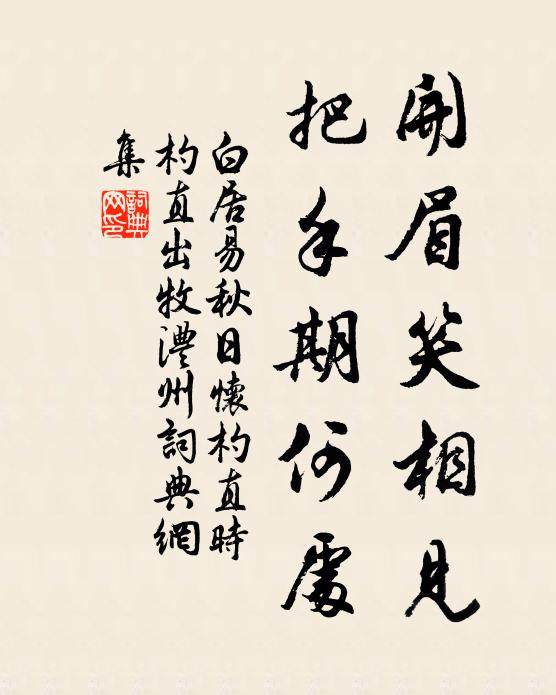 開眉笑相見
把手期何處
白居易秋日懷杓直時
杓直出牧澧州詞典網
集
詞典網印